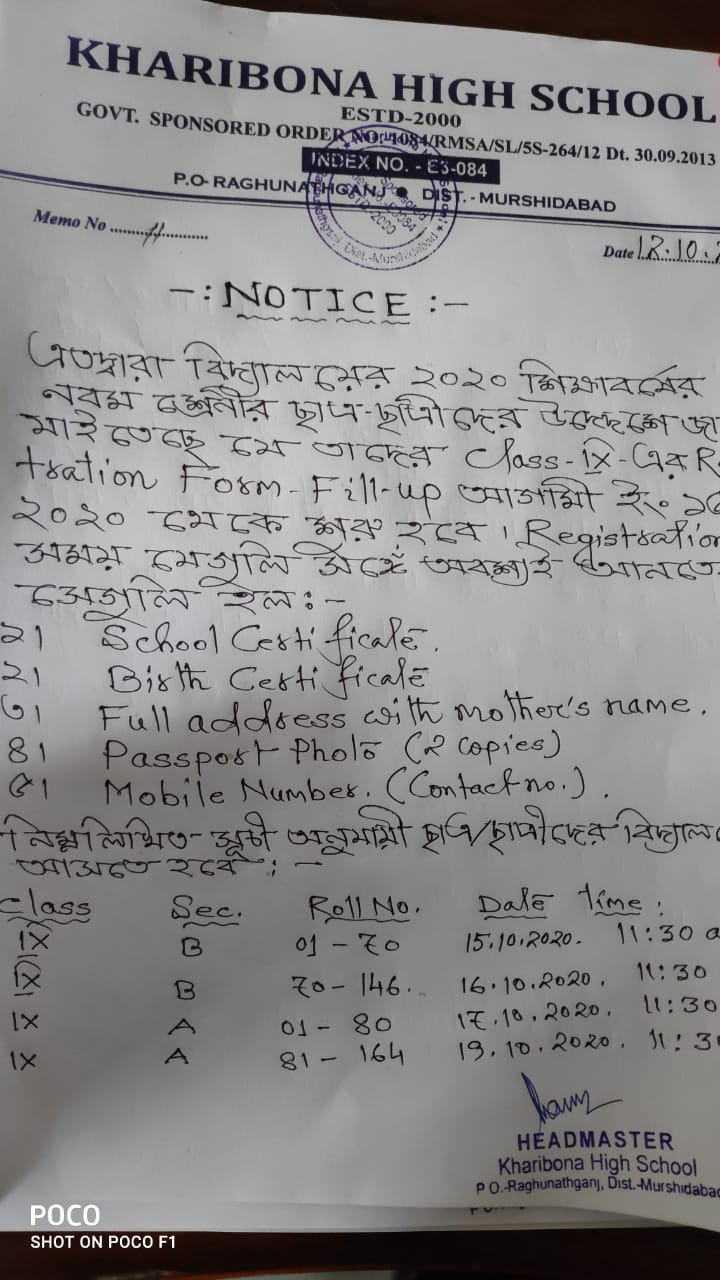 KHARIBONA HIGH SCHOOL
ESTD-2000
GOVT. SPONSORED ORDER NO.-1084/RMSA/SL/5S-264/12 Dt. 30.09.2013
INDEX NO. - E3-084
P.O- RAGHUNATHGANJ ● DIST. - MURSHIDABAD
Memo No ...........
Date 12.10.
-: NOTICE :-
এতদ্বারা বিদ্যালয়ের ২০২০ শিক্ষাবর্ষের
নবম শ্রেণীর ছাত্র-ছাত্রীদের উদ্দেশ্যে জা
যাইতেছে যে তাদের Class-IX-এর R
tration Form-Fill-up আগামী ইং
২০২০ থেকে শুরু হবে। Registration
সময় যেগুলি সঙ্গে অবশ্যই আনতে
সেগুলি হল:-
১। School Certificate.
২। Birth Certificate
৩। Full address with mother's name.
৪। Passport Photo (2 copies)
৫। Mobile Number. (Contact no.).
নিম্নলিখিত সূচী অনুযায়ী ছাত্র/ছাত্রীদের বিদ্যাল
আসতে হবে:-
Class Sec. Roll No. Date time:
IX B 01 - 70 15.10.2020. 11:30 a
IX B 70 - 146. 16.10.2020. 11:30
IX A 01 - 80 17.10.2020. 11:30
IX A 81 - 164 19.10.2020. 11:3
HEADMASTER
Kharibona High School
P.O.-Raghunathganj, Dist.-Murshidabad
POCO
SHOT ON POCO F1